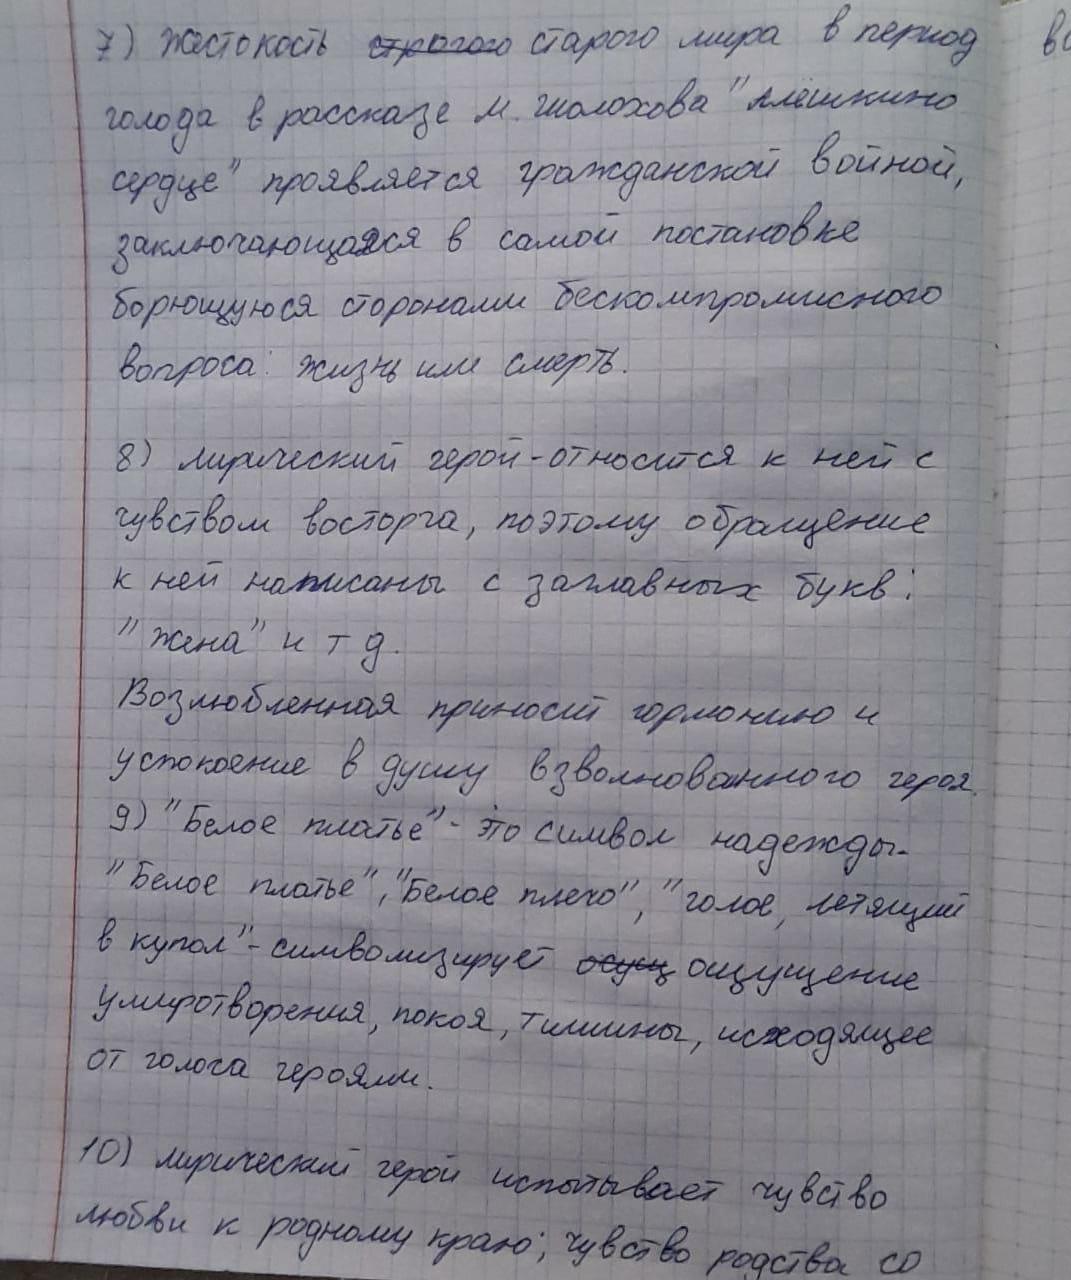 7) Жестокость строгого старого мира в период
голода в рассказе М. Шолохова "Алёшкино
сердце" проявляется гражданской войной,
заключающаяся в самой постановке
борющуюся сторонами бескомпромисного
вопроса: жизнь или смерть.
8) Лирический герой - относится к ней с
чувством восторга, поэтому обращение
к ней написаны с заглавных букв:
"Жена" и т д.
Возлюбленная приносит гормонию и
успокоение в душу взволнованного героя.
9) "Белое платье" - это символ надежды.
"Белое платье", "Белое плечо", "голос, летящий
в купол" - символизирует осущ ощущение
умиротворения, покоя, тишины, исходящее
от голоса героями.
10) Лирический герой испытывает чувство
любви к родному краю; чувство родства со